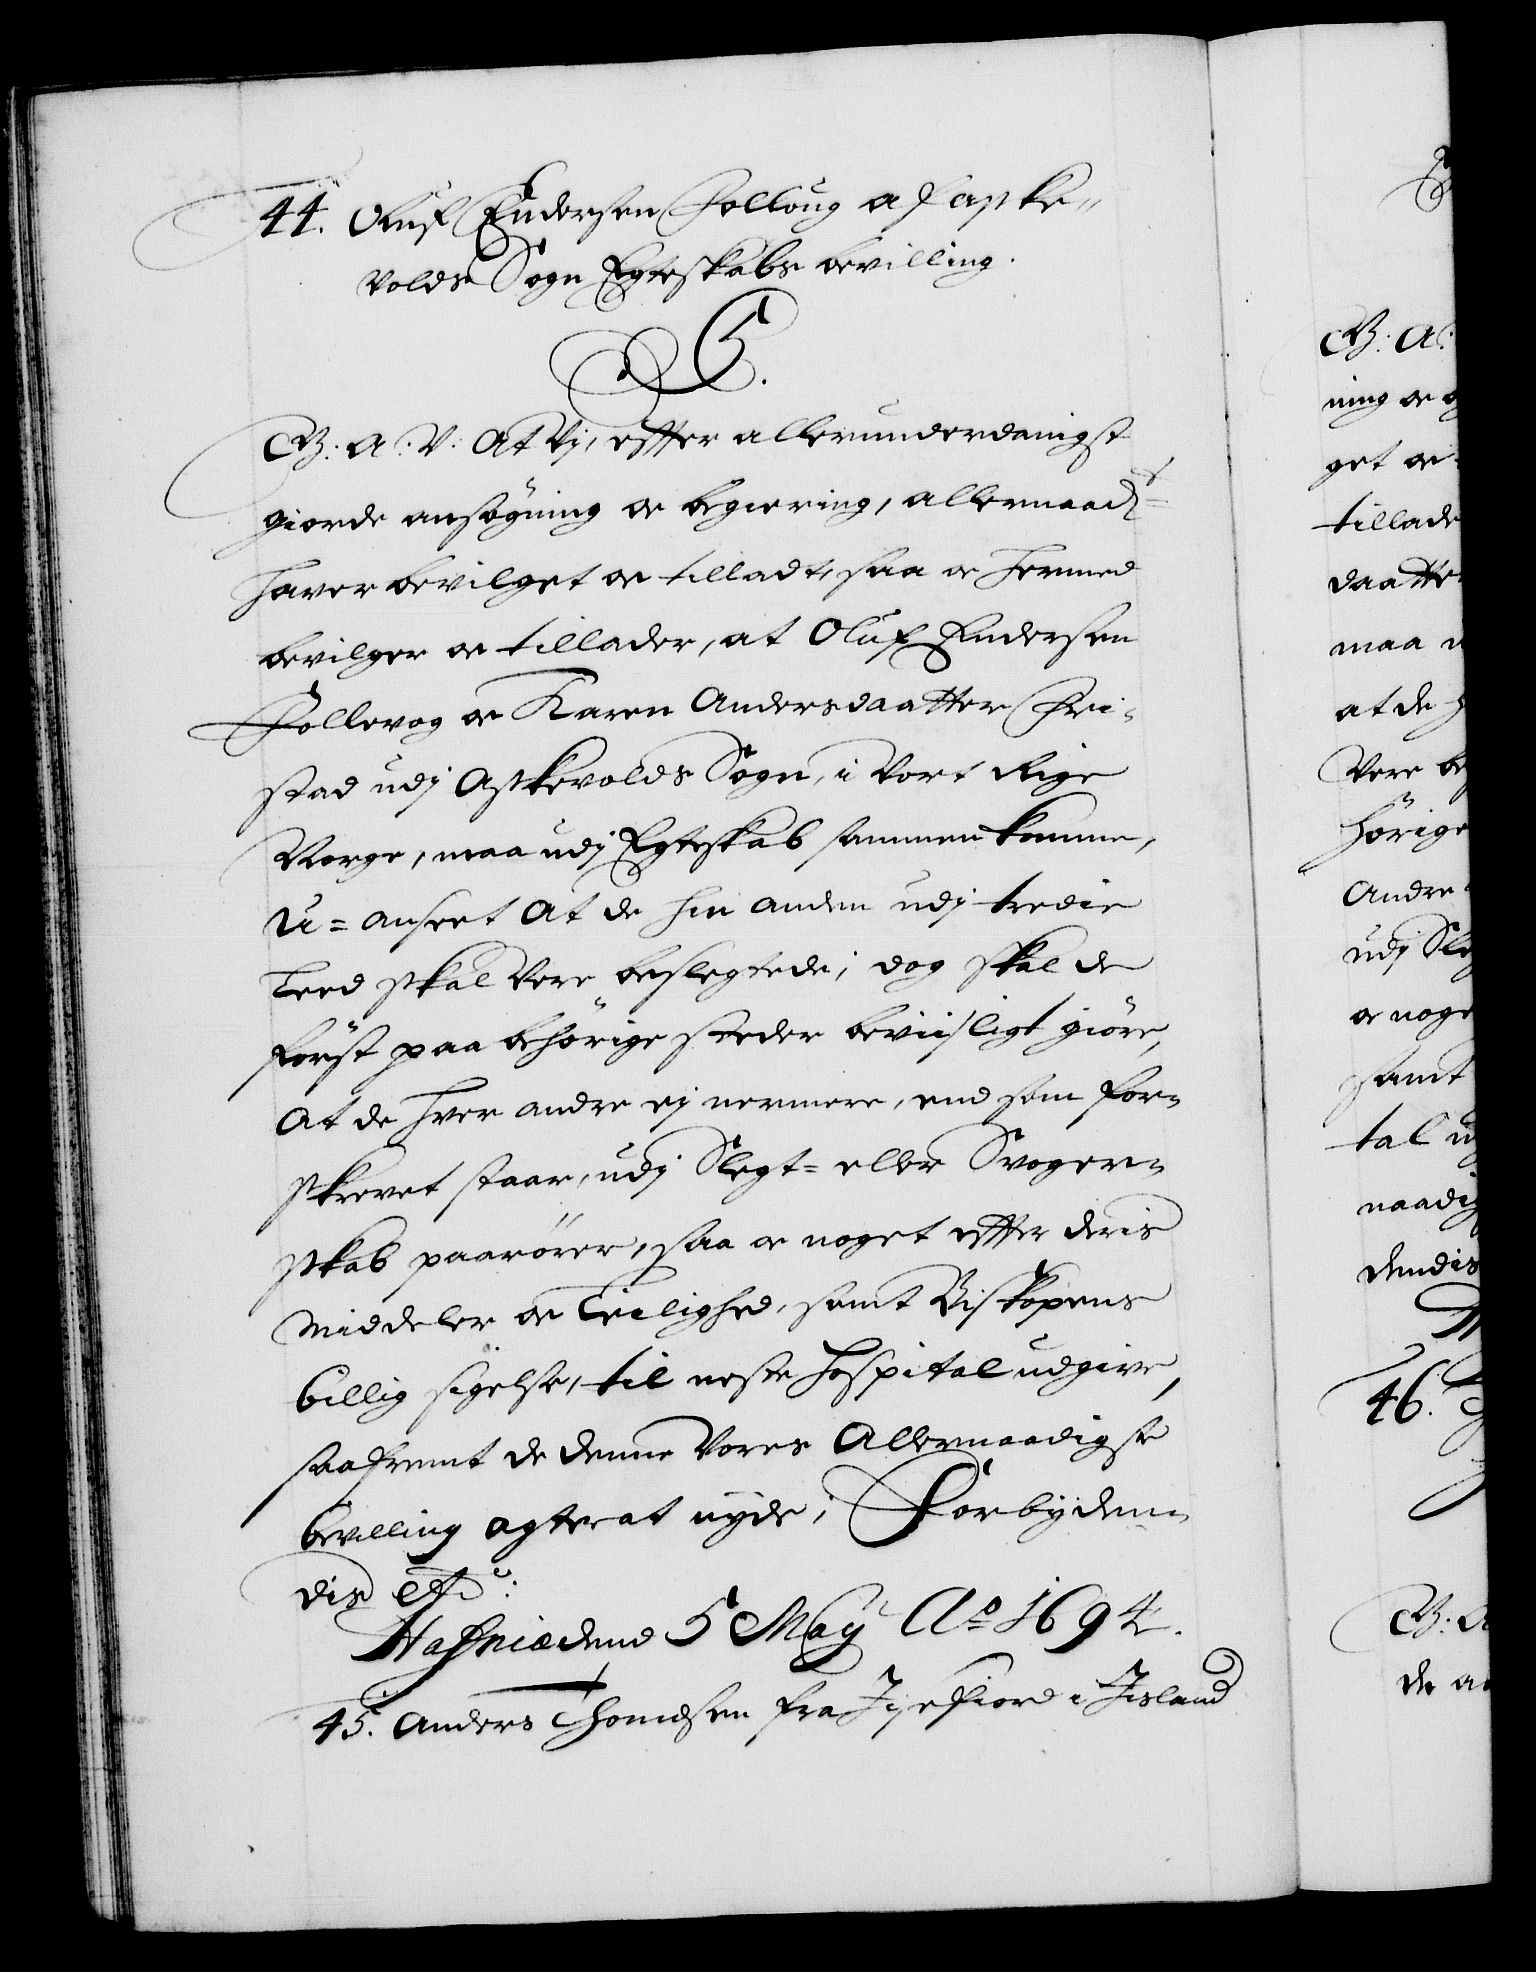 44. Oluf Endersen Holloug af Aske-
volds Sogn Egteskabs bevilling.
C5.
G: A: V: At Vj, effter allerunderdanigst
giorde ansögning oc begiering, allernaadt
haver bevilget oc tilladt, saa oc hermed
bevilger oc tillader, at Oluf Endersen
Hollevog oc Karen Andersdaatter Fri-
stad udj Askevolds Sogn, i Vort Rige
Norge, maa udj Egteskab sammen komme,
U=anseet At de hin anden udj tredie
Leed skal vere beslegtede; dog skal de
först paa behörige steder beviisligt giöre,
At de hver andre ej nermere, end som for-
skrevet staar, udj Slegt= eller Svoger-
skab paarörer, saa oc noget effter deris
Middeler oc Leilighed, samt Biskopens
billig sigelse, til neste Hospital udgive,
saafremt de denne Vores Allernaadigste
bevilling agter at nyde; Forbyden-
dis etc:
Hafniæ dend 5 Maij Ao 1694.
45. Anders Thomesen fra Ijsefiord i Iisland
G: A:
ning oc
get oc
tillade
daatter
maa
at de
Vere be
hörige
Andre
udj Sleg
oc noge
samt
tal
naadig
dendis
46.
G: A
de